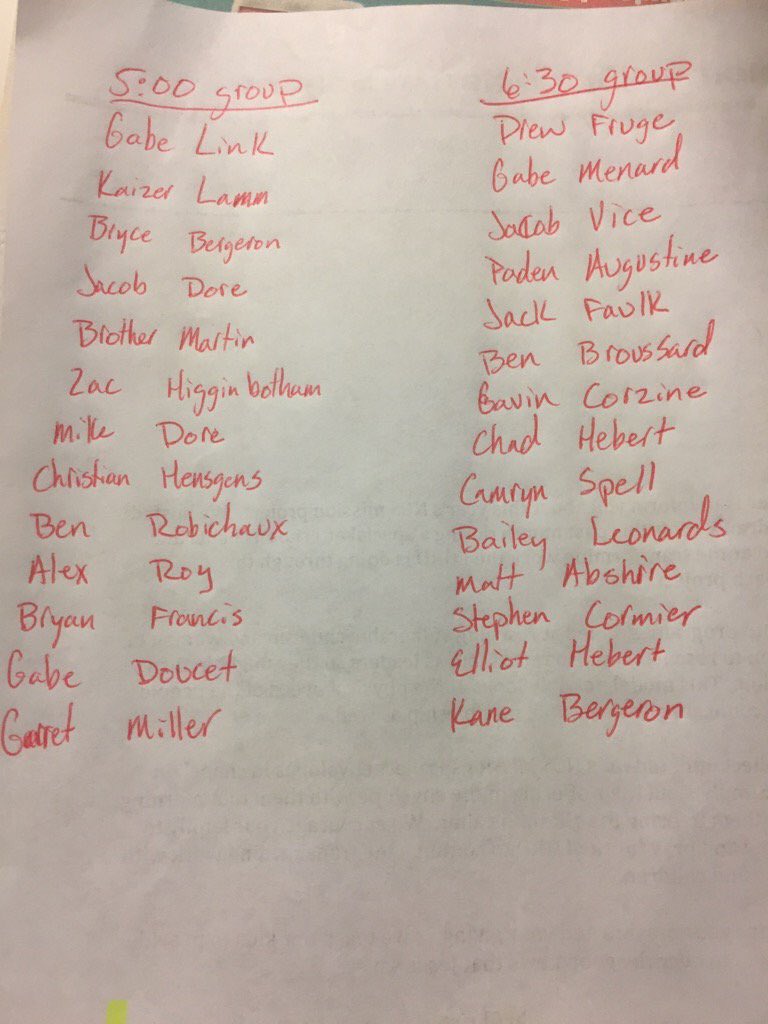 5:00 group
Gabe Link
Kaizer Lamm
Bryce Bergeron
Jacob Dore
Brother Martin
Zac Higginbotham
Mike Dore
Christian Hensgens
Ben Robichaux
Alex Roy
Bryan Francis
Gabe Doucet
Garret Miller
6:30 group
Drew Fruge
Gabe Menard
Jacob Vice
Paden Augustine
Jack Faulk
Ben Broussard
Gavin Corzine
Chad Hebert
Camryn Spell
Bailey Leonards
Matt Abshire
Stephen Cormier
Elliot Hebert
Kane Bergeron